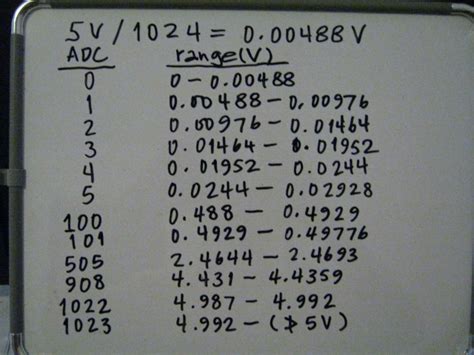 5V/1024 = 0.00488V
ADC range(V)
0 0 - 0.00488
1 0.00488 - 0.00976
2 0.00976 - 0.01464
3 0.01464 - 0.01952
4 0.01952 - 0.0244
5 0.0244 - 0.02928
100 0.488 - 0.4929
101 0.4929 - 0.49776
505 2.4644 - 2.4693
908 4.431 - 4.4359
1022 4.987 - 4.992
1023 4.992 - (≯5V)